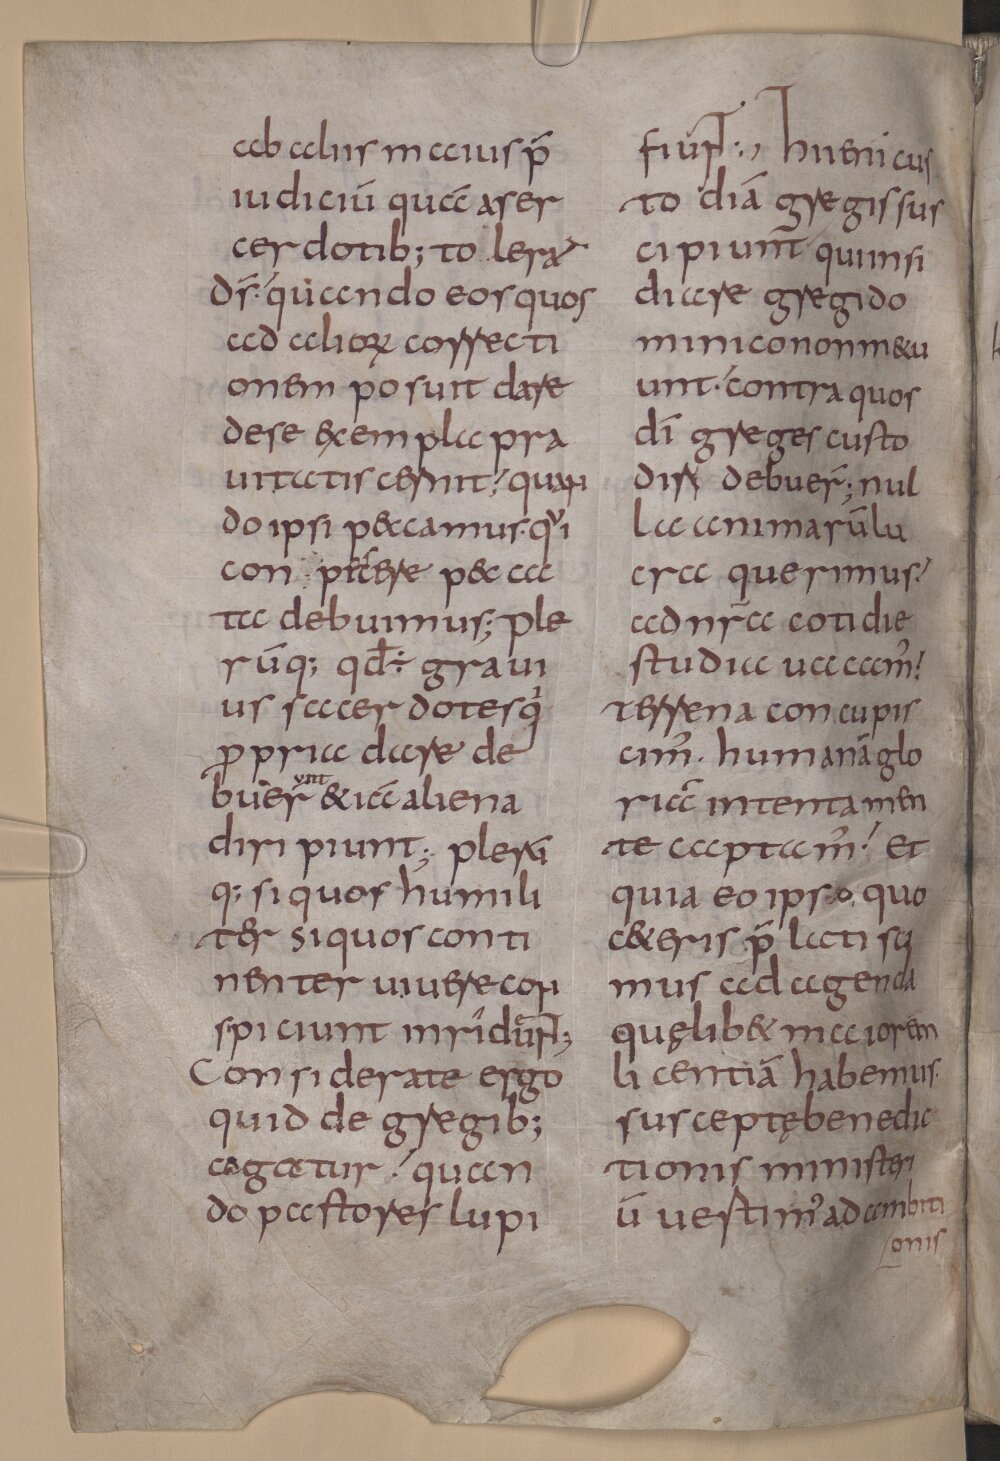 ab aliis maius p̄
iudiciū quā a ser
cerdotib; tolerat
ds̄. quando eos quos
ad aliorꝝ correcti
onem posuit dare
de se exempla pra
uitatis cernit; quan
do ipsi peccamus. qui
con pescere pecca
ta debuimus; Ple
rūq; qđ graui
us sacerdotes qui
ꝓpria dare de
buerunt & iā aliena
diripiunt; plerū
q; si quos humili
ter si quos conti
nenter uiuere con
spiciunt inridunt;
Considerate ergo
quid de gregib;
agatur quan
do pastores lupi
fiunt. hi enī cus
todiā gregis sus
cipiunt qui insi
diare gregi do
minico non metu
unt. contra quos
dī greges custo
diri debuer̄; nul
la animarū lu
cra querimus
ad nr̄a cotidie
studia uacam̉
terrena concupis
cim̉. humanā glo
riā intenta men
te captam̉ Et
quia eo ipso quo
ceteris p̄lati su
mus ad agenda
quęlibet maiorem
licentiā habemus.
susceptę benedic
tionis ministeri
ū uertim̉ ad ambiti
onis